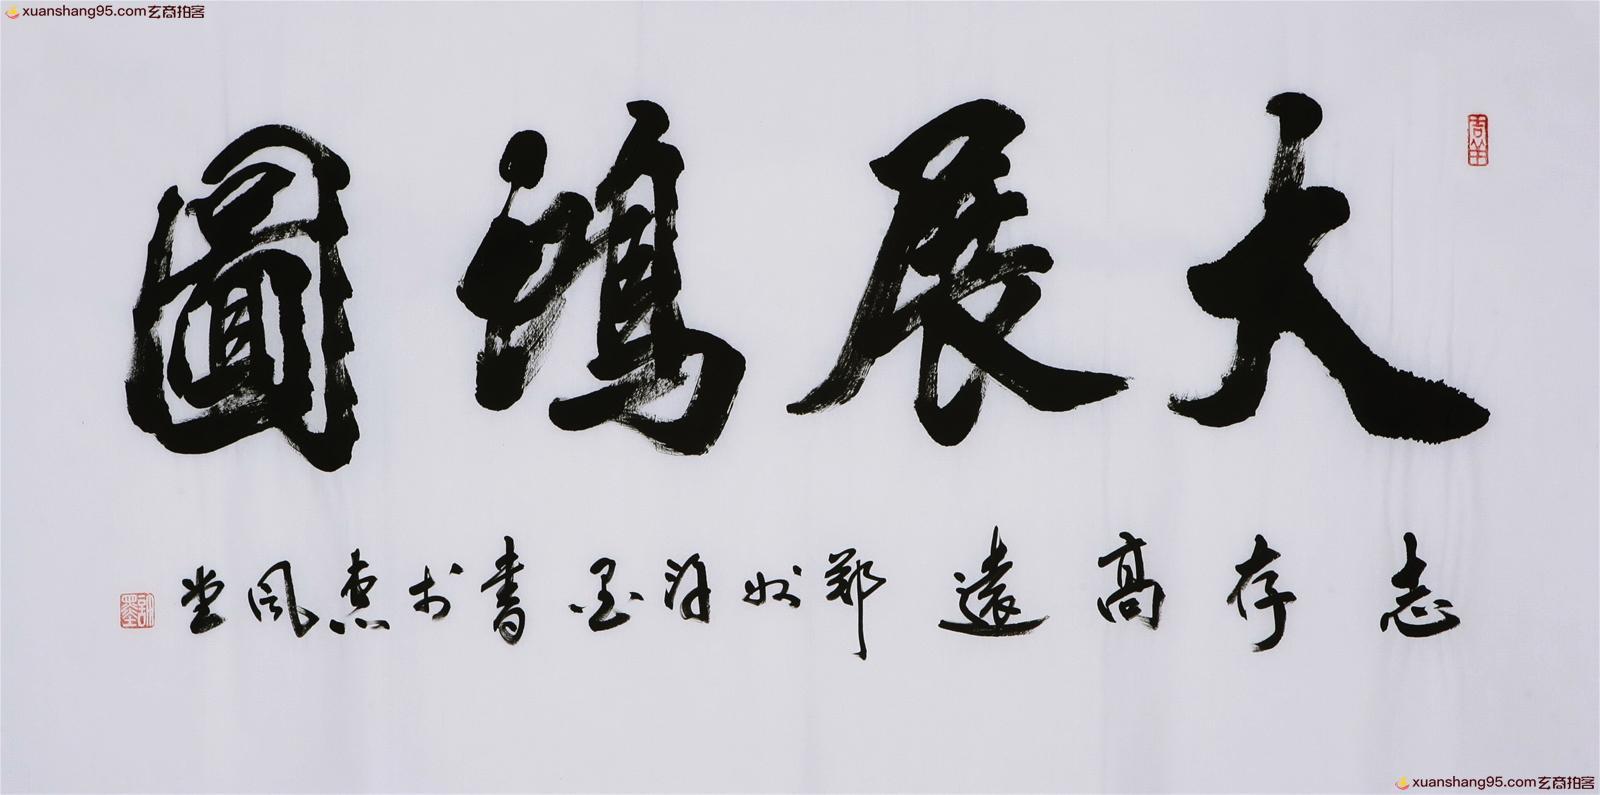 xuanshang95.com玄商拍客
大展鴻圖
志存高遠 鄭州許墨書於惠風堂
許墨
xuanshang95.com玄商拍客